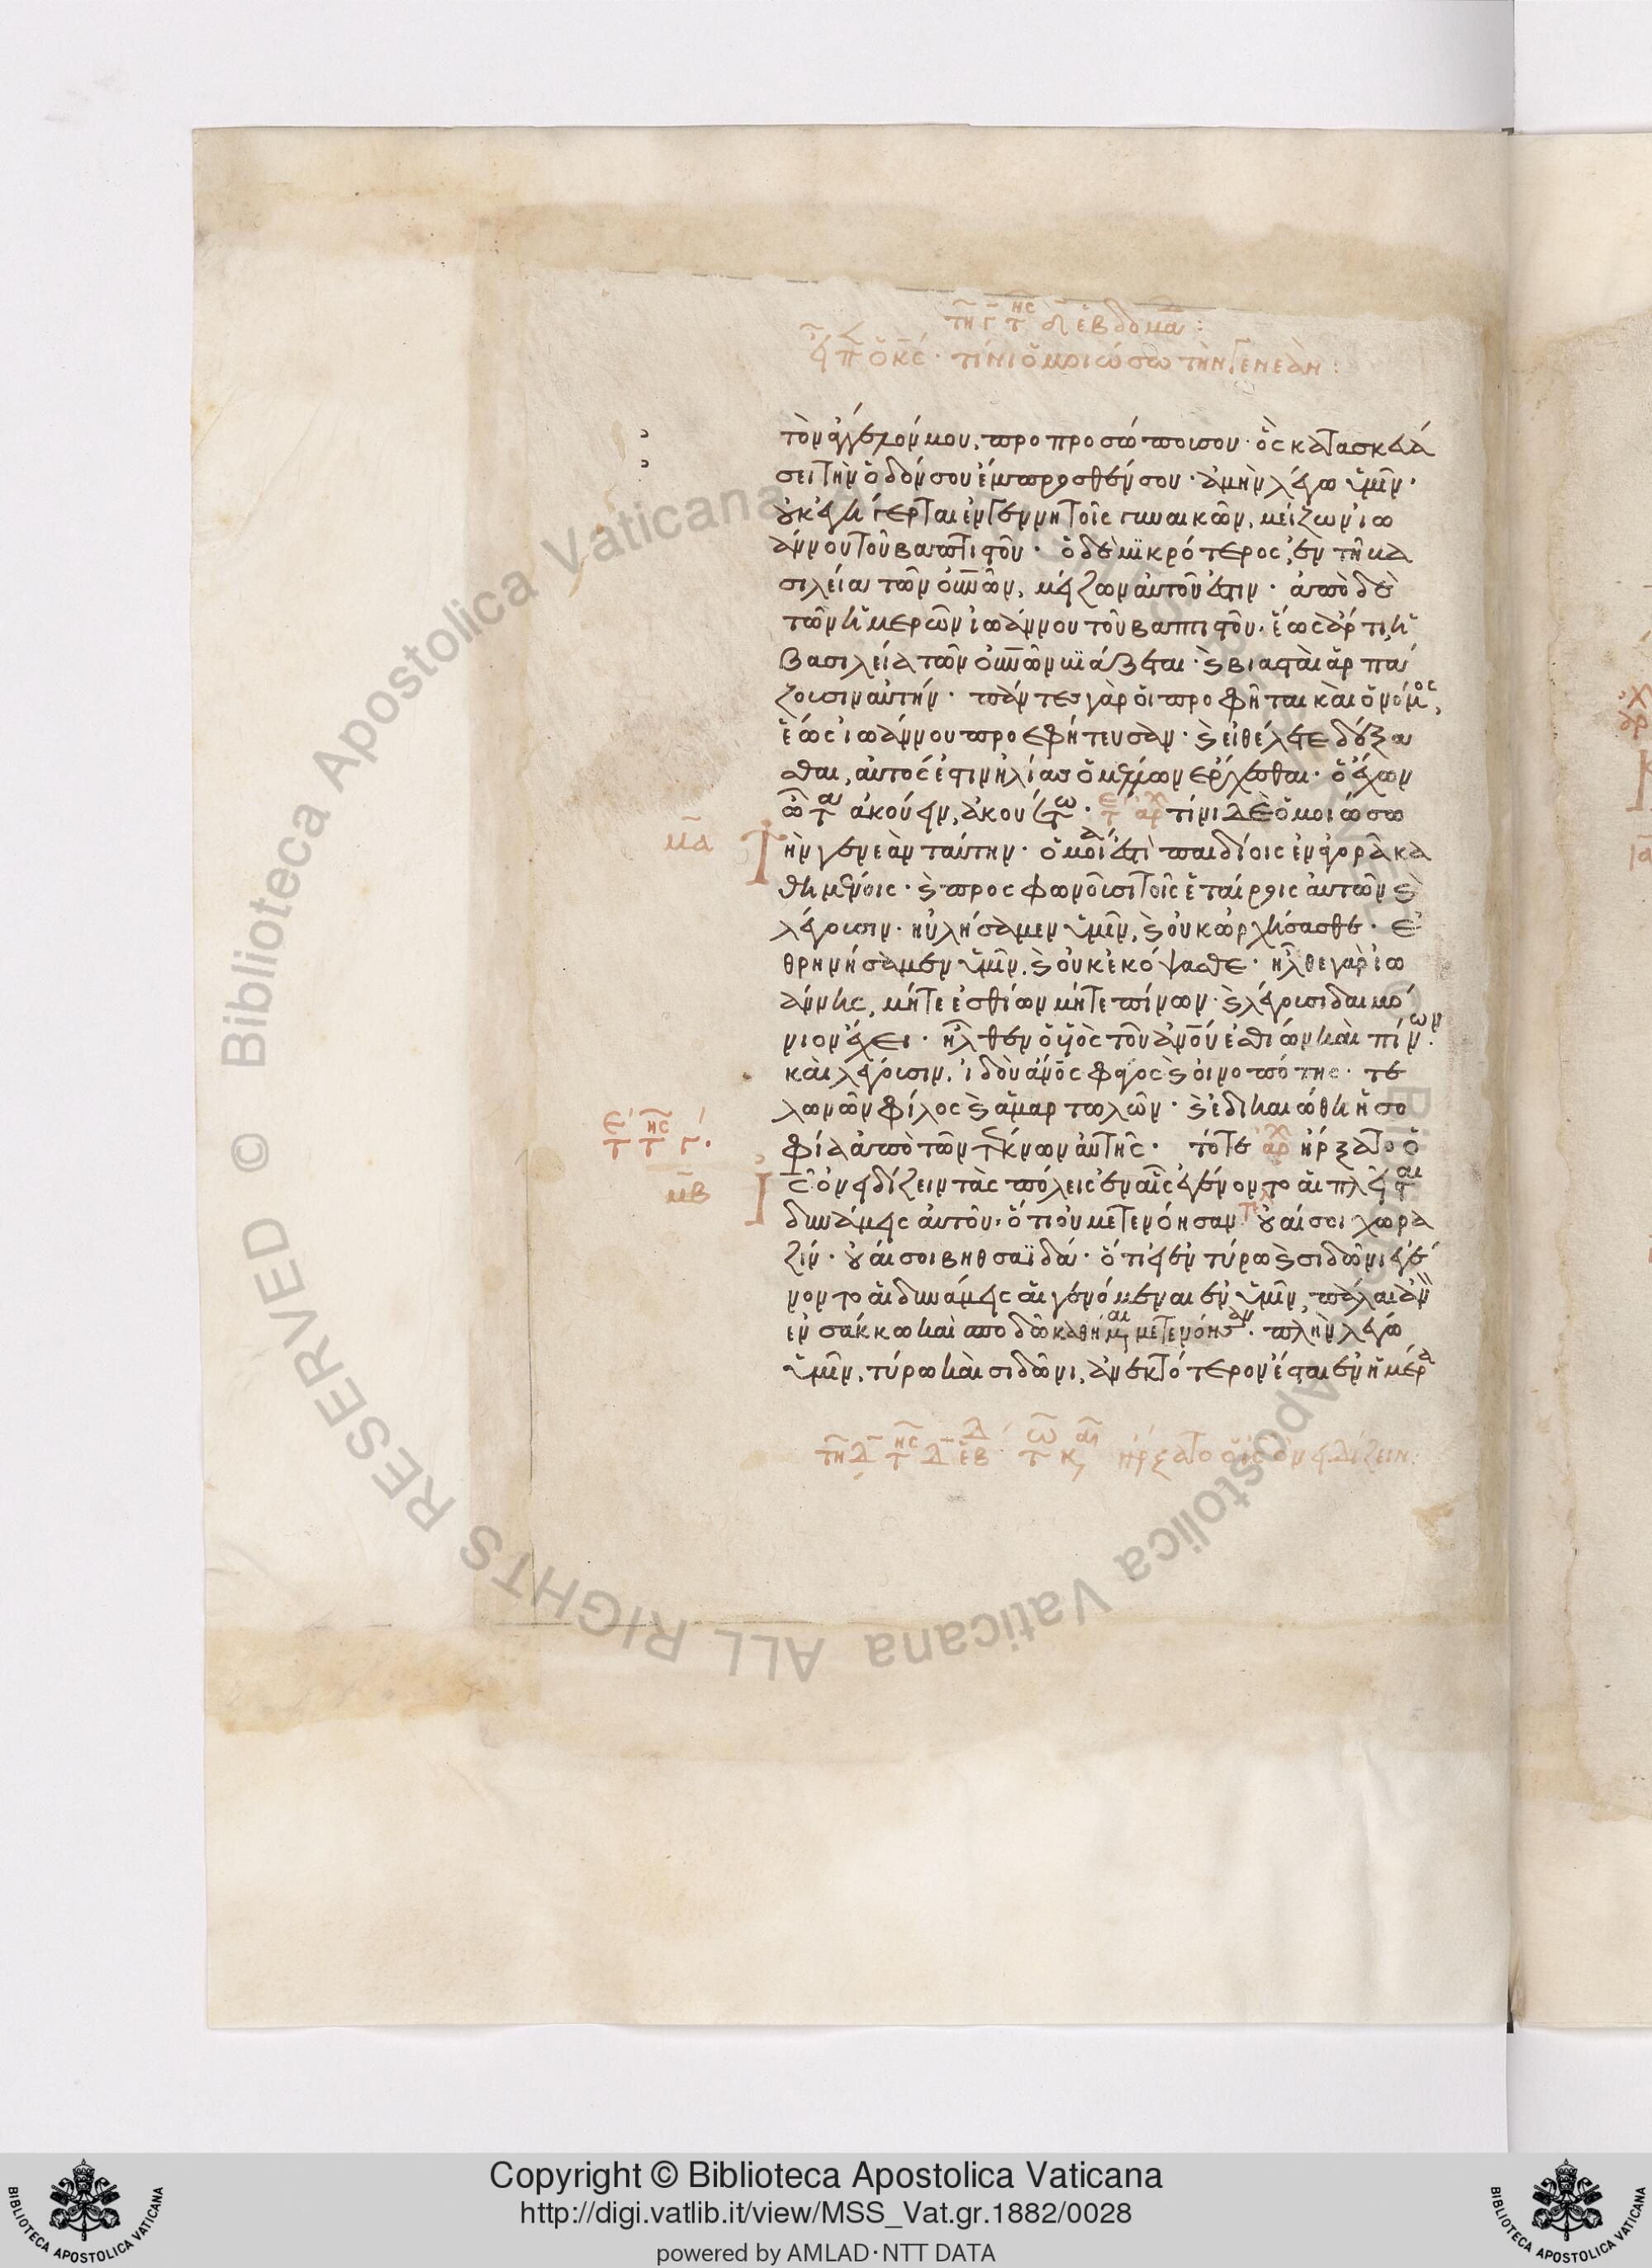 τῆ γ τῆς δ ἑβδομά:
εἶπ ὁ κς· τίνι ὁμοιώσω τὴν γενεὰν:
τὸν ἄγγελόν μου, προ προσώπου σου· ὃς κατασκευά
σει τὴν ὁδόν σου ἔμπροσθέν σου· ἀμὴν λέγω ὑμῖν·
οὐκ ἐγήγερται ἐν γεννητοῖς γυναικῶν, μείζων ἰω
άννου τοῦ βαπτιστοῦ· ὁ δὲ μικρότερος, ἐν τῆ βα
σιλεία τῶν οὐνῶν, μείζων αὐτοῦ ἐστιν· ἀπὸ δὲ
τῶν ἡμερῶν ἰωάννου τοῦ βαπτιστοῦ, ἕως ἄρτι, ἡ
βασιλεία τῶν οὐνῶν βιάζεται· καὶ βιασταὶ ἁρπά
ζουσιν αὐτήν· πάντες γὰρ οἱ προφῆται καὶ ὁ νόμος,
ἕως ἰωάννου προεφήτευσαν· καὶ εἰ θέλετε δέξα
σθαι, αὐτός ἐστιν ἠλίας ὁ μέλλων ἔρχεσθαι· ὁ ἔχων
ὦτα ἀκούειν, ἀκουέτω· τε ἀρχ τίνι δὲ ὁμοιώσω
μα Τὴν γενεὰν ταύτην· ὁμοία ἐστὶ παιδίοις ἐν ἀγορᾶ κα
θημένοις· καὶ προσφωνοῦσι τοῖς ἑταίροις αὐτῶν καὶ
λέγουσιν· ηὐλήσαμεν ὑμῖν, καὶ οὐκ ὠρχήσασθε· ἐ
θρηνήσαμεν ὑμῖν, καὶ οὐκ ἐκόψασθε· ἦλθε γὰρ ἰω
άννης, μήτε ἐσθίων μήτε πίνων· καὶ λέγουσι δαιμό
νιον ἔχει· ἦλθεν ὁ υἱὸς τοῦ ἀνου ἐσθίων καὶ πίνων·
καὶ λέγουσιν, ἰδοὺ ἀνος φάγος καὶ οἰνοπότης· τε
λωνῶν φίλος καὶ ἁμαρτωλῶν· καὶ ἐδικαιώθη ἡ σο
τε τῆς γ· φία ἀπὸ τῶν τέκνων αὐτῆς· τότε ἀρχ ἤρξατο ὁ
μβ Ις ὀνειδίζειν τὰς πόλεις ἐν αἷς ἐγένοντο αἱ πλεῖσται
δυνάμεις αὐτοῦ, ὅτι οὐ μετενόησαν· οὐαί σοι χωρα
ζίν· οὐαί σοι βηθσαϊδά· ὅτι εἰ ἐν τύρω καὶ σιδῶνι ἐγέ
νοντο αἱ δυνάμεις αἱ γενόμεναι ἐν ὑμῖν, πάλαι ἂν
ἐν σάκκω καὶ σποδῶ καθήμεναι μετενόησαν· πλὴν λέγω
ὑμῖν, τύρω καὶ σιδῶνι, ἀνεκτότερον ἔσται ἐν ἡμέρα
τῆ δ τῆς δ ἑβδ τῶ κ ἤρξατο ὁ ις ὀνειδίζειν:
Copyright © Biblioteca Apostolica Vaticana
http://digi.vatlib.it/view/MSS_Vat.gr.1882/0028
powered by AMLAD·NTT DATA
© Biblioteca Apostolica Vaticana ALL RIGHTS RESERVED
BIBLIOTECA APOSTOLICA VATICANA
BIBLIOTECA APOSTOLICA VATICANA